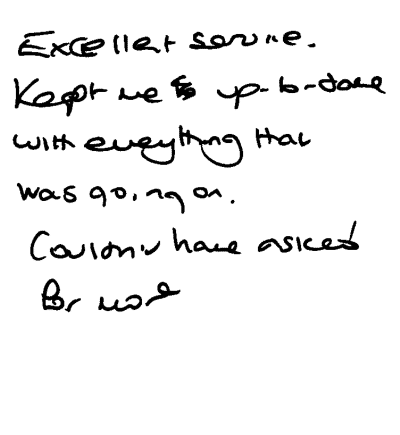 Excellent service.
Kept me up-to-date
with everything that
was going on.
Couldn't have asked
for more